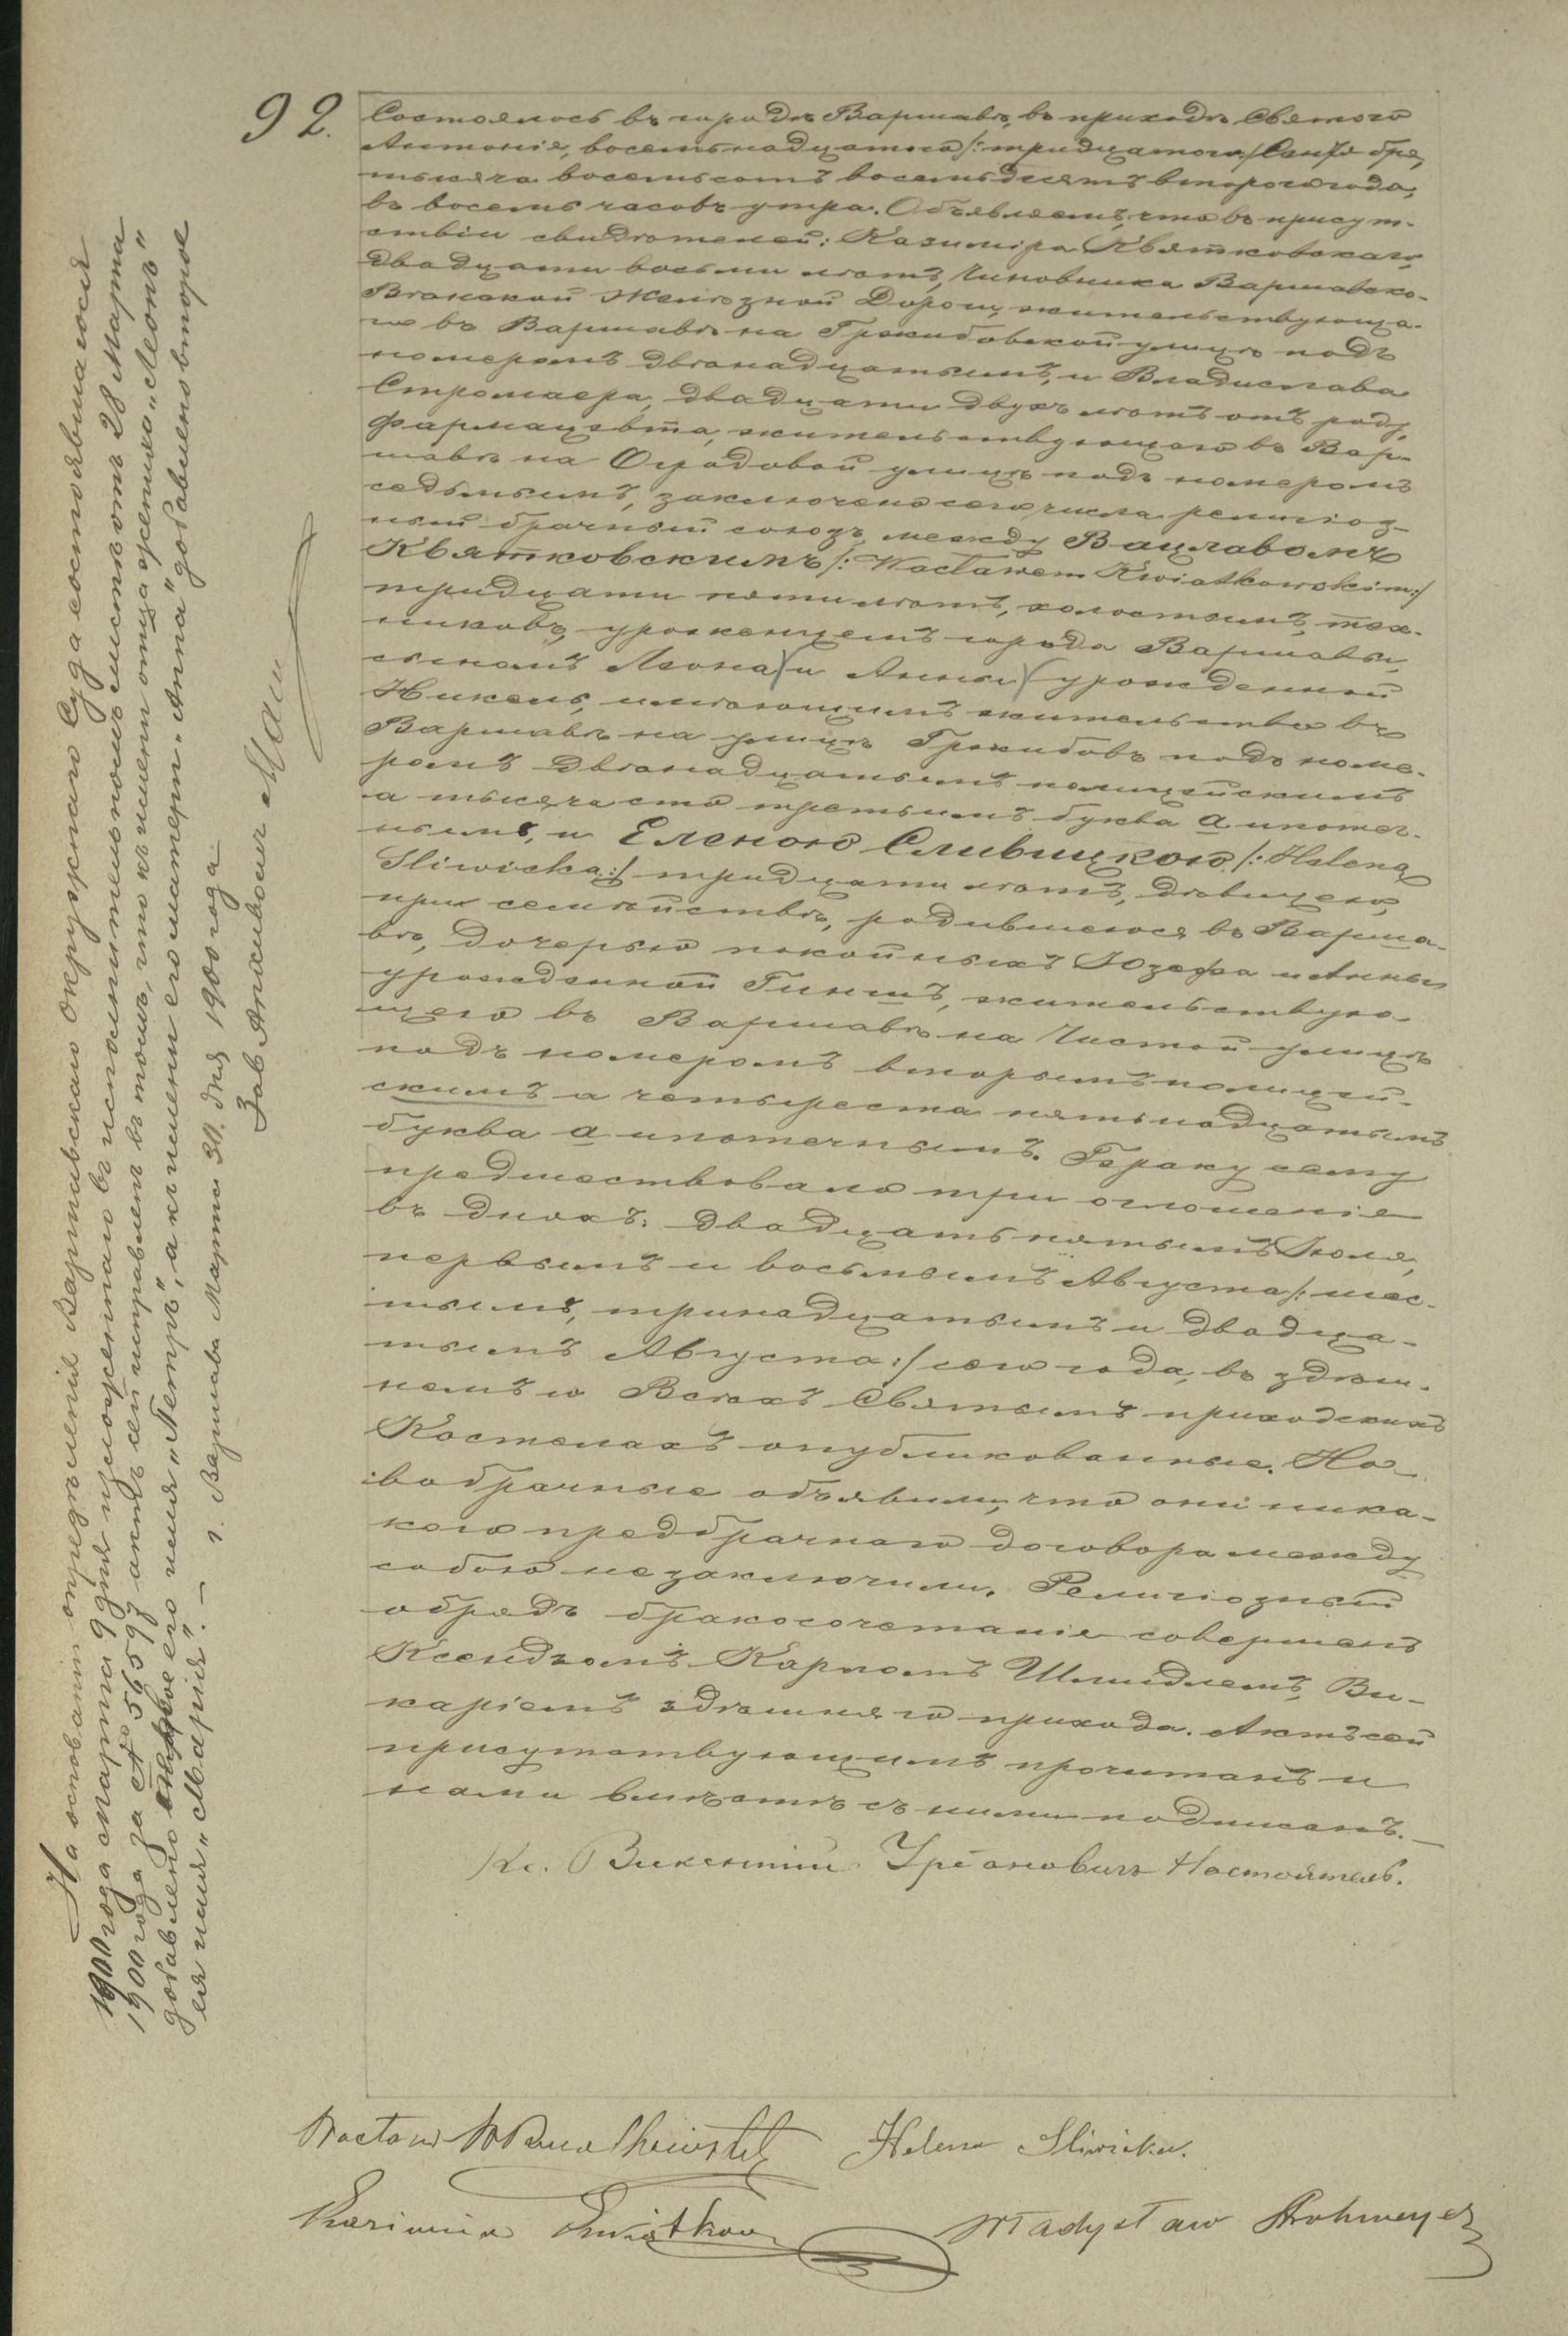 92.
Состоялось въ городѣ Варшавѣ, въ приходѣ Святого
Антонія, восемнадцатого /: тридцатого/ Сентября,
тысяча восемьсотъ восемьдесятъ второго года,
въ восемь часовъ утра. Объявляемъ, что въ присут-
ствіи свидѣтелей: Казиміра Квятковскаго,
двадцати восьми лѣтъ, Чиновника Варшавско-
Вѣнской Желѣзной Дороги, жительствующа-
го въ Варшавѣ на Гржибовской улицѣ подъ
номеромъ двѣнадцатымъ, и Владислава
Стромаера, двадцати двухъ лѣтъ отъ роду,
Фармацевта, жительствующаго въ Вар-
шавѣ на Огродовой улицѣ подъ номеромъ
седьмымъ, заключено сего числа религіоз-
ный брачный союзъ между Вацлавомъ
Квятковскимъ /: Wacławem Kwiatkowskim :/
тридцати пяти лѣтъ, холостымъ, тех-
никовъ, уроженцемъ города Варшавы,
сыномъ Леона и Анны урожденной
Никель, имѣющимъ жительство въ
Варшавѣ на улицѣ Гржибовъ подъ номе-
ромъ двѣнадцатымъ полицейскимъ
а тысяча сто третьимъ буква а ипотеч-
нымъ, и Еленою Сливицкою /: Helena
Sliwicka :/ тридцати лѣтъ, дѣвицею,
при семействѣ, родившеюся въ Варша-
вѣ, дочерью покойныхъ Юзефа и Анны
урожденной Гиншъ, жительствую-
щею въ Варшавѣ на Чистой улицѣ
подъ номеромъ вторымъ полицей-
скимъ а четыреста пятьнадцатымъ
буква а ипотечнымъ. Браку сему
предшествовало три оглошеніе
въ дняхъ: двадцать пятымъ Іюля,
первымъ и восьмымъ Августа /: шес-
тымъ, тринадцатымъ и двадца-
тымъ Августа :/ сего года, въ здѣш-
немъ и Всѣхъ Святымъ приходскихъ
Костелахъ опубликованные. Но-
вобрачные объявили, что они ника-
кого предбрачнаго договора между
собою не заключили. Религіозный
обрядъ бракосочетаніе совершенъ
Ксендзомъ Карломъ Шмидлемъ, Ви-
каріемъ здѣшняго прихода. Актъ сей
присутствующимъ прочитанъ и
нами вмѣстѣ съ ними подписанъ.—
Кс. Викентій Настоятель.
Wacław Helena Sliwicka.
Kazimierz Kwiatkow Władysław Strohmeyer
На основаніи опредѣленія Варшавскаго Окружнаго Суда состоявшагося
1900 года Марта 9 дня изложеннаго въ исполнительномъ листѣ отъ 28 Марта
1900 года за № 56597 актъ сей исправленъ въ томъ, что къ имени отца жениха „Леонъ"
добавлено его имя „Петръ", а къ имени его матери „Анна" добавлено второе
ея имя „Марія". — г. Варшава Марта 30 дня 1900 года
Зав Архивомъ